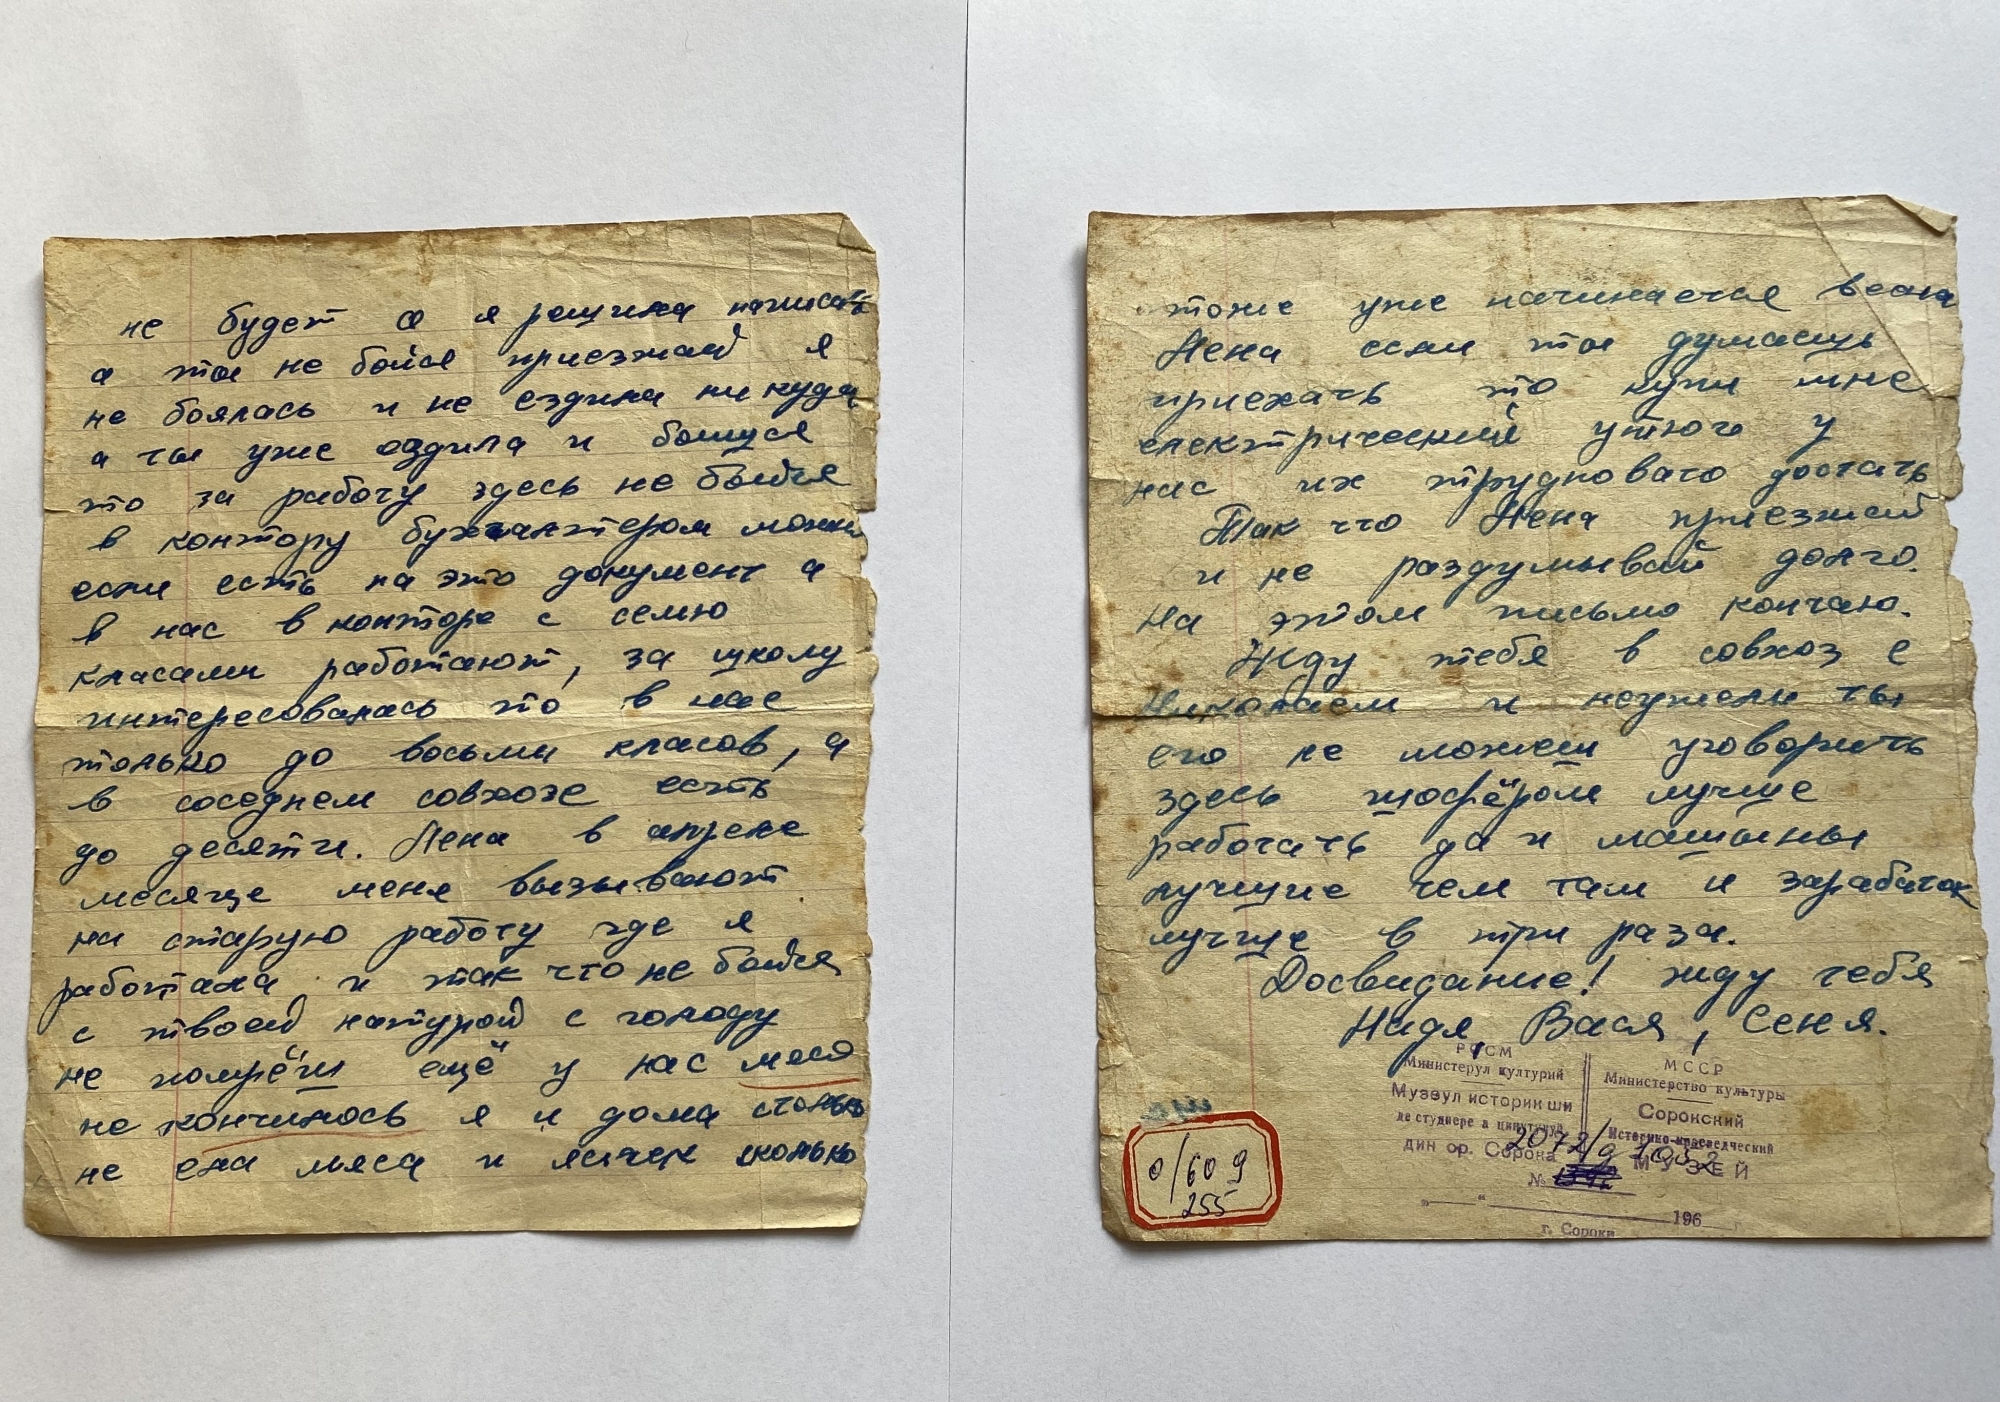 не будет а я решила написать
а ты не бойся приезжай я
не боялась и не ездила никуда
а ты уже ездила и боишся
то за работу здесь не бойся
в контору бухгалтером можно
если есть на это документ а
в нас в конторе с семю
класами работают, за школу
интересовалась то в нас
только до восьми класов, а
в соседнем совхозе есть
до десяти. Лена в апреле
месяце меня вызывают
на старую работу где я
работала, и так что не бойся
с твоей натурой с голоду
не помрёш ещё у нас мясо
не кончилось я и дома столько
не ела мяса и яичек сколько
тоже уже начинается весна
Лена если ты думаешь
приехать то купи мне
електрический утюг у
нас их трудновато достать
Так что Лена приезжай
и не раздумывай долго.
На этом письмо кончаю.
Жду тебя в совхоз с
Николаем и неужели ты
его не можеш уговорить
здесь шофёром лучше
работать да и машыны
лучшие чем там и заработок
лучше в три раза.
Досвидание! жду тебя
Надя, Вася, Сеня.
РССМ
Министерул културий
Музеул историк ши
де студиере а цинутулуй
дин ор. Сорока
МССР
Министерство культуры
Сорокский
Историко-краеведческий
МУЗЕЙ
2072/9 1032
№
196 г.
г. Сороки
0/60 9
255